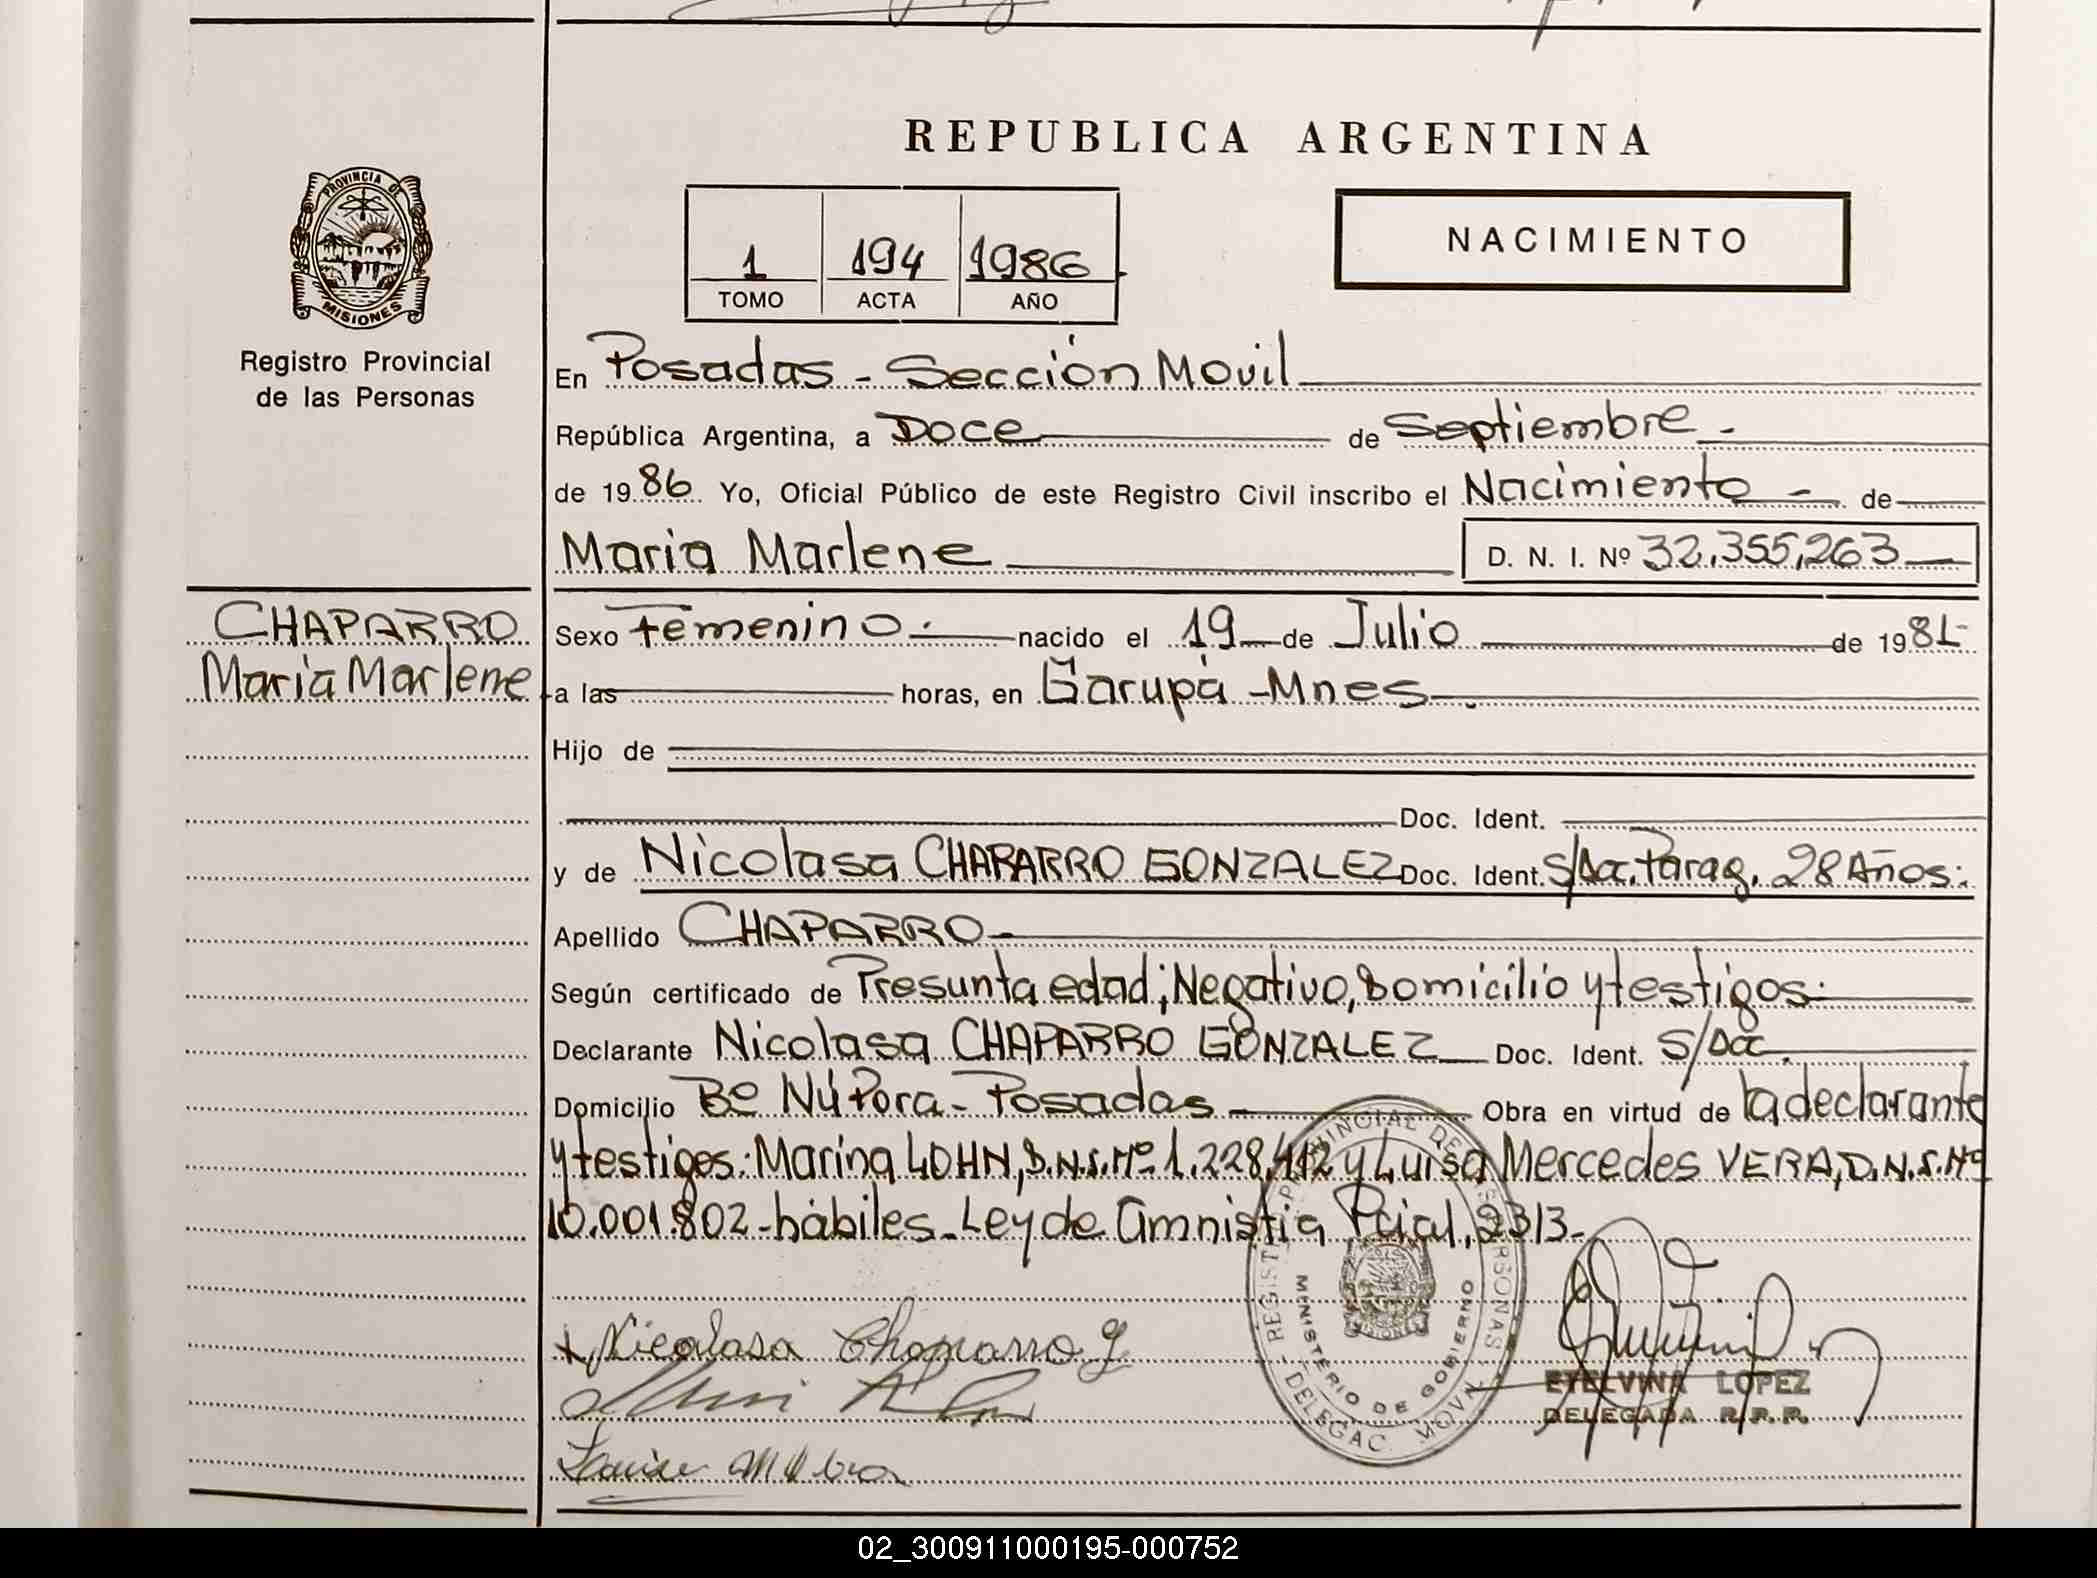 REPUBLICA ARGENTINA
PROVINCIA DE
MISIONES
Registro Provincial
de las Personas
1 194 1986
TOMO ACTA AÑO
NACIMIENTO
En Posadas - Sección Movil
República Argentina, a Doce de Septiembre -
de 1986 Yo, Oficial Público de este Registro Civil inscribo el Nacimiento - de
Maria Marlene D. N. I. Nº 32.355,263
CHAPARRO
Maria Marlene
Sexo Femenino.- nacido el 19 de Julio de 1981-
a las horas, en Garupá - Mnes.
Hijo de
Doc. Ident.
y de Nicolasa CHAPARRO GONZALEZ Doc. Ident. S/Doc. Parag. 28 Años.
Apellido CHAPARRO -
Según certificado de Presunta edad; Negativo, Domicilio y testigos.
Declarante Nicolasa CHAPARRO GONZALEZ Doc. Ident. S/Doc.
Domicilio Bº Ñú Pora - Posadas - Obra en virtud de la declarante
y testigos: Marina LOHN, D.N.I. Nº 1.228.412 y Luisa Mercedes VERA, D.N.I. Nº
10.001.802 - hábiles - Ley de Amnistia Pcial, 2313 -
Nicolasa Chaparro G
REGIST PROVINCIAL DE PERSONAS
MINISTERIO DE GOBIERNO
DELEGAC. MOVIL
ETELVINA LOPEZ
DELEGADA R.P.P.
02_300911000195-000752